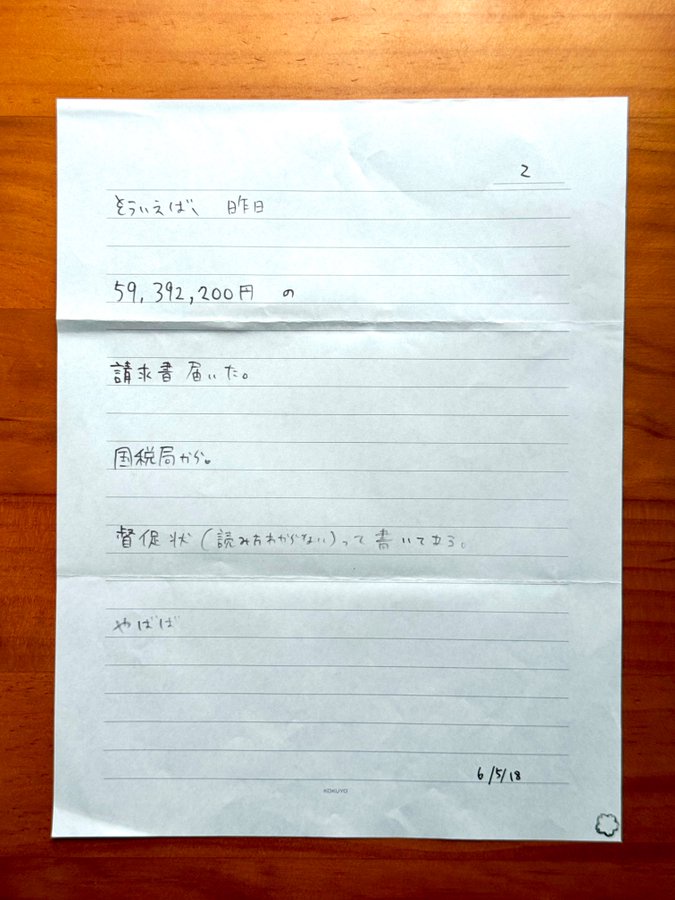 2
そういえば、昨日
59,392,200円 の
請求書 届いた。
国税局から。
督促状(読み方わからない)って書いてある。
やばば
6/5/18
KOKUYO